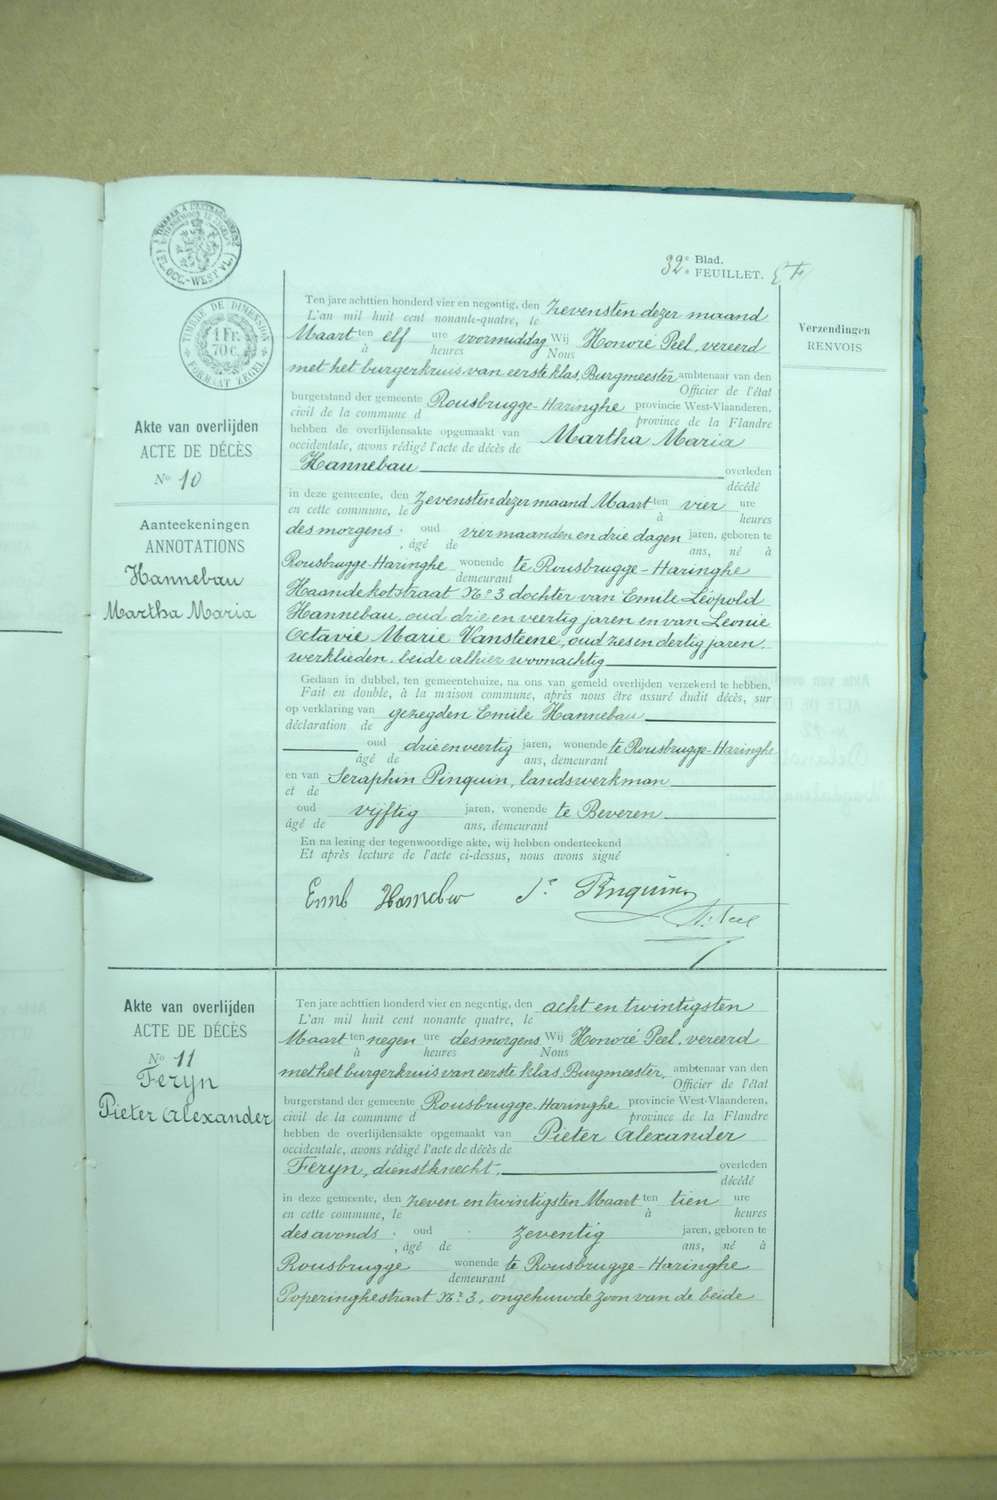 TIMBRE DE DIMENSION
1 Fr.
70 c.
FORMAAT ZEGEL
32e Blad.
FEUILLET.
Verzendingen
RENVOIS
Akte van overlijden
ACTE DE DÉCÈS
No 10
Aanteekeningen
ANNOTATIONS
Hannebau
Martha Maria
Ten jare achttien honderd vier en negentig, den zevensten dezer maand
L'an mil huit cent nonante-quatre, le
Maart ten elf ure voormiddag Wij Honoré Peel, vereerd
à heures Nous
met het burgerkruis van eerste klas, Burgmeester ambtenaar van den
Officier de l'état
burgerstand der gemeente Rousbrugge-Haringhe provincie West-Vlaanderen,
civil de la commune d province de la Flandre
hebben de overlijdensakte opgemaakt van Martha Maria
occidentale, avons rédigé l'acte de décès de
Hannebau overleden
décédé
in deze gemeente, den zevensten dezer maand Maart ten vier ure
en cette commune, le à heures
des morgens, oud vier maanden en drie dagen jaren, geboren te
, âgé de ans, né à
Rousbrugge-Haringhe wonende te Rousbrugge-Haringhe
demeurant
Haandekotstraat No 3 dochter van Emile Léopold
Hannebau, oud drie en veertig jaren en van Leonie
Octavie Marie Vansteene, oud zes en dertig jaren,
werklieden, beide alhier woonachtig
Gedaan in dubbel, ten gemeentehuize, na ons van gemeld overlijden verzekerd te hebben,
Fait en double, à la maison commune, après nous être assuré dudit décès, sur
op verklaring van gezegden Emile Hannebau
déclaration de
oud drie en veertig jaren, wonende te Rousbrugge-Haringhe
âgé de ans, demeurant
en van Seraphin Pinquin, landswerkman
et de
oud vijftig jaren, wonende te Beveren.
âgé de ans, demeurant
En na lezing der tegenwoordige akte, wij hebben onderteekend
Et après lecture de l'acte ci-dessus, nous avons signé
Pinquin
H. Peel
Akte van overlijden
ACTE DE DÉCÈS
No 11
Feryn
Pieter Alexander
Ten jare achttien honderd vier en negentig, den acht en twintigsten
L'an mil huit cent nonante quatre, le
Maart ten negen ure des morgens Wij Honoré Peel, vereerd
à heures Nous
met het burgerkruis van eerste klas, Burgmeester, ambtenaar van den
Officier de l'état
burgerstand der gemeente Rousbrugge-Haringhe provincie West-Vlaanderen,
civil de la commune d province de la Flandre
hebben de overlijdensakte opgemaakt van Pieter Alexander
occidentale, avons rédigé l'acte de décès de
Feryn, dienstknecht, overleden
décédé
in deze gemeente, den zeven en twintigsten Maart ten tien ure
en cette commune, le à heures
des avonds, oud zeventig jaren, geboren te
, âgé de ans, né à
Rousbrugge wonende te Rousbrugge-Haringhe
demeurant
Poperinghestraat No 3, ongehuwde zoon van de beide